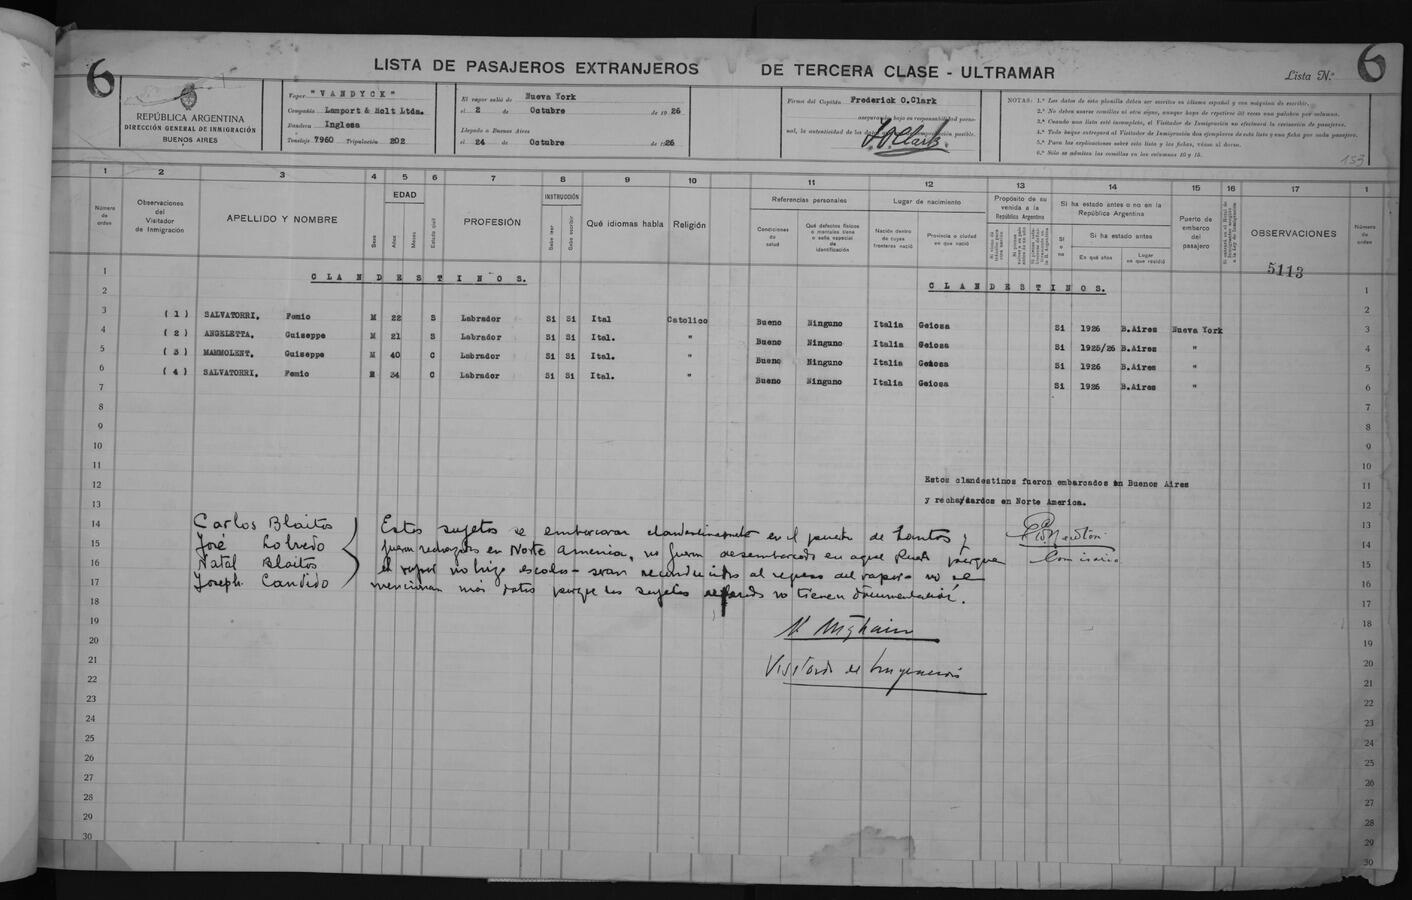 6
LISTA DE PASAJEROS EXTRANJEROS DE TERCERA CLASE - ULTRAMAR
Lista N.º 6
REPÚBLICA ARGENTINA
DIRECCIÓN GENERAL DE INMIGRACIÓN
BUENOS AIRES
Vapor "VANDYCK"
Compañía Lamport & Holt Ltda.
Bandera Inglesa
Tonelaje 7960 Tripulación 202
El vapor salió de Nueva York
el 2 Octubre de 1926
Llegado a Buenos Aires
el 24 de Octubre de 1926
Firma del Capitán Frederick O.Clark
asegurando bajo su responsabilidad perso-
nal, la autenticidad de los posible.
NOTAS: 1.ª Los datos de esta planilla deben ser escritos en idioma español y con máquina de escribir.
2.ª No deben usarse comillas ni otro signo, aunque haya de repetirse 30 veces una palabra por columna.
3.ª Cuando una lista esté incompleta, el Visitador de Inmigración no efectuará la revisación de pasajeros.
4.ª Todo buque entregará al Visitador de Inmigración dos ejemplares de esta lista y una ficha por cada pasajero.
5.ª Para las explicaciones sobre esta lista y las fichas, véase al dorso.
6.ª Sólo se admiten las comillas en las columnas 10 y 15.
153
1 2 3 4 5 6 7 8 9 10 11 12 13 14 15 16 17 1
Número de orden
Observaciones del Visitador de Inmigración
APELLIDO Y NOMBRE
Sexo
EDAD
Años
Meses
Estado civil
PROFESIÓN
INSTRUCCIÓN
Sabe leer
Sabe escribir
Qué idiomas habla
Religión
Referencias personales
Condiciones de salud
Qué defectos físicos o mentales tiene o seña especial de identificación
Lugar de nacimiento
Nación dentro de cuyas fronteras nació
Provincia o ciudad en que nació
Propósito de su venida a la República Argentina
Si ha estado antes o no en la República Argentina
Si o no
Si ha estado antes
En qué años
Lugar en que residió
Puerto de embarco del pasajero
OBSERVACIONES
Número de orden
5113
CLANDESTINOS. CLANDESTINOS.
(1) SALVATORRI, Femio M 22 S Labrador Si Si Ital Catolico Bueno Ninguno Italia Geiosa Si 1926 B.Aires Nueva York
(2) ANGELETTA, Guiseppe M 21 S Labrador Si Si Ital. " Bueno Ninguno Italia Geiosa Si 1925/26 B.Aires "
(3) MAMMOLENT, Guiseppe M 40 C Labrador Si Si Ital. " Bueno Ninguno Italia Geiosa Si 1926 B.Aires "
(4) SALVATORRI, Femio M 34 C Labrador Si Si Ital. " Bueno Ninguno Italia Geiosa Si 1926 B.Aires "
Estos clandestinos fueron embarcados en Buenos Aires
y rechazardos en Norte America.
Carlos Blaitos
José Lobredo
Natal Blaitos
Joseph Candido
Estos sujetos se embarcaron clandestinamente en el puerto de Santos y
fueron rechazados en Norte America, no fueron desembarcados en aquel Puerto porque
el vapor no hizo escala - seran reconducidos al regreso del vapor. no se
mencionan más datos porque los sujetos no tienen documentación.
Comisario
Visitador de Inmigración